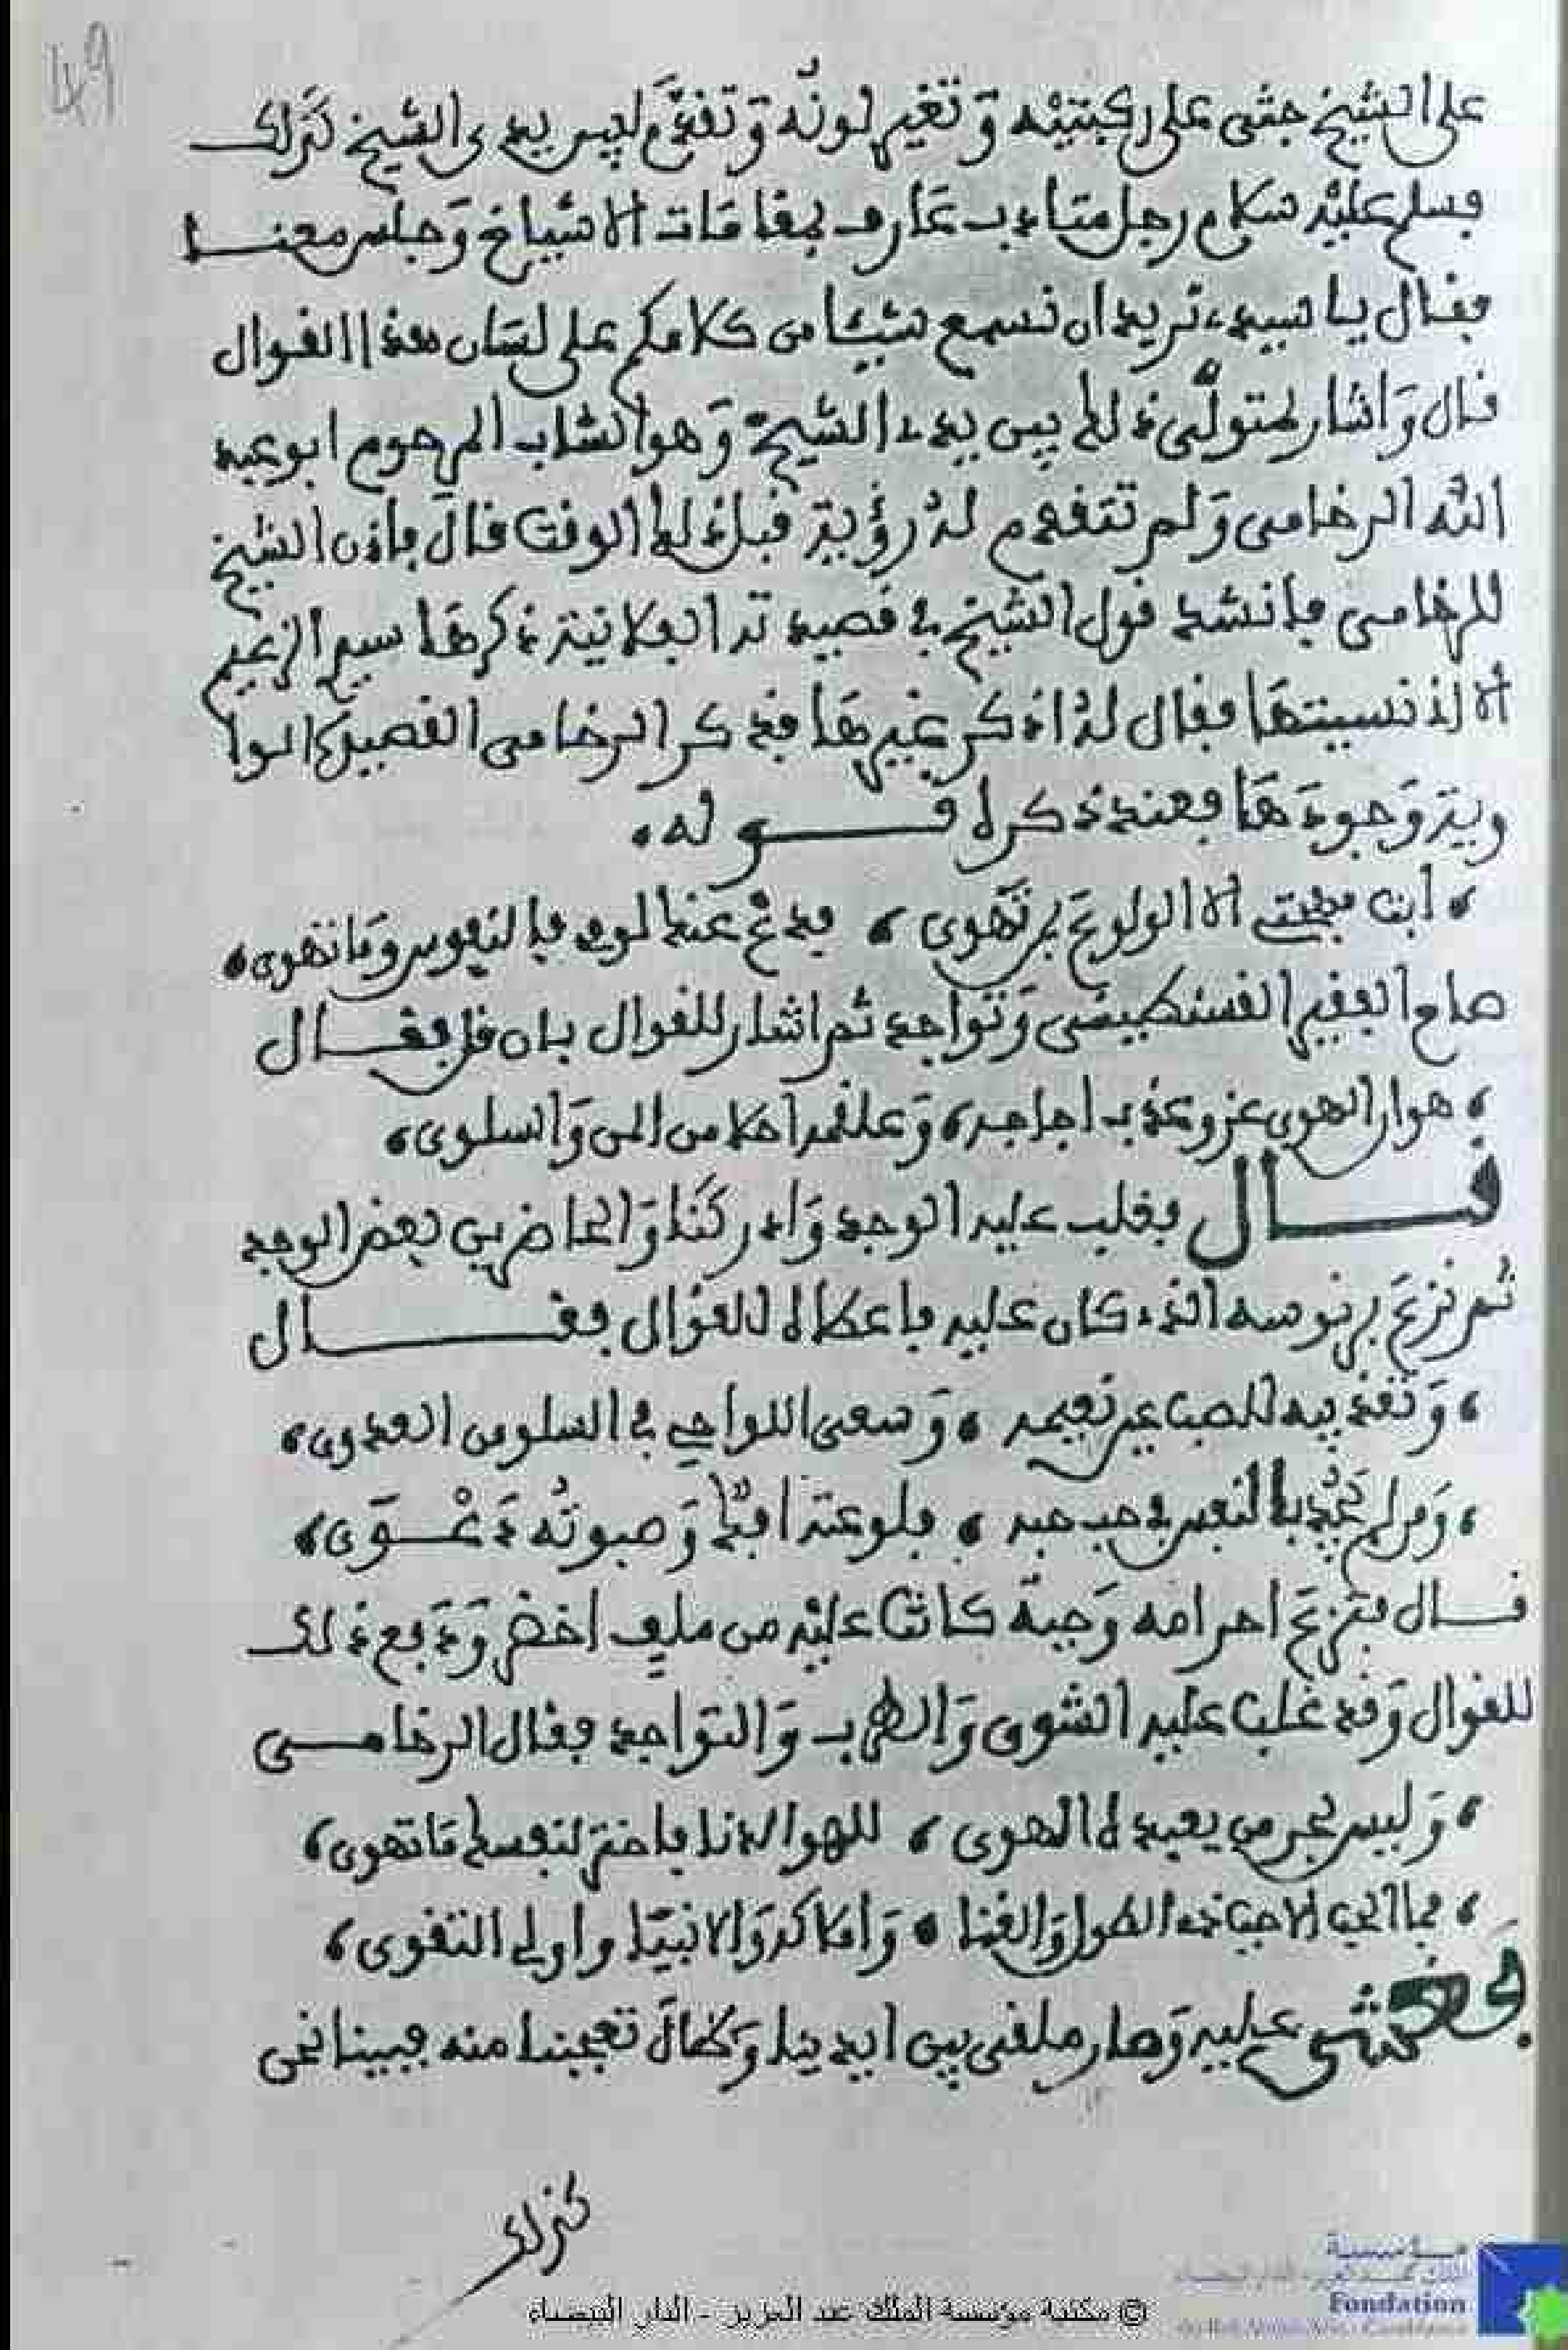 49
على الشيخ جثى على ركبتيه وَتغير لونُه وَتقدَّم لبين يدي الشيخ كذلك
فسلم عليْه سلام رجل متاءدب عَارف بمقامَات الاشياخ وَجلس معنا
فقال يا سيدي نريد ان نسمع شيئا من كلامكم على لسَان هذا القوال
قال وَاشار لمتولّى ذلك بين يدي الشيخ وَهو الشاب المرحوم ابو عبد
الله الرخامى وَلم تتقدم لهُ رؤية قبل ذلك الوقت قالَ فاذن الشيخ
للرخامى فانشد قول الشيخ في قصيدته الفلانية ذكرهَا سيم الزعيم
الا انه نسيتهَا فقال لهُ اذكر غيرهَا فذكر الرخامى القصيدة الوا
وية وَجودهَا فعند ذكره قوله
ابت مهجتى الا الولوعَ بمن تَّهوى فدع عنك لومى فالنفوس وَما تهوى
صاح الفقير القسنطينى وَتواجد ثم اشار للقوال بان قل فقال
هوان الهوى عز وعذب اجاجه وَعلقمه احلا من المن وَالسلوى
قال فغلب عليه الوجد وَادركنَا وَالحاضرين بعض الوجد
ثم نزعَ برنوسه الذي كان عليه فاعطاه للقوال فقال
وَتعذيبه للصب عين نعيمه وَسعى اللواحى في السلو من العدوى
وَمن لم يَجُدْ بالنفس في حب حبه فلوعته افكٌ وَصبوتُه دَعْوَى
قال فنزعَ احرامه وَجبة كانت عليْه من ملف اخضر وَدَفع ذلك
للقوال وَقد غلب عليه الشوق وَالطرب وَالتواجد فقال الرخامى
وَليس بحر من يعبده الهوى للهوا لادنا فاختر لنفسك مَا تهوى
فما الحب الا حب ذي الطول وَالغنا وَاملاكه وَالانبيَا واولى التقوى
فغشي عليه وَصار ملقى بين ايدينا وَطالَ تعجبنا منه فبينا نحن
كذلك
© مكتبة مؤسسة الملك عبد العزيز - الدار البيضاء
Fondation